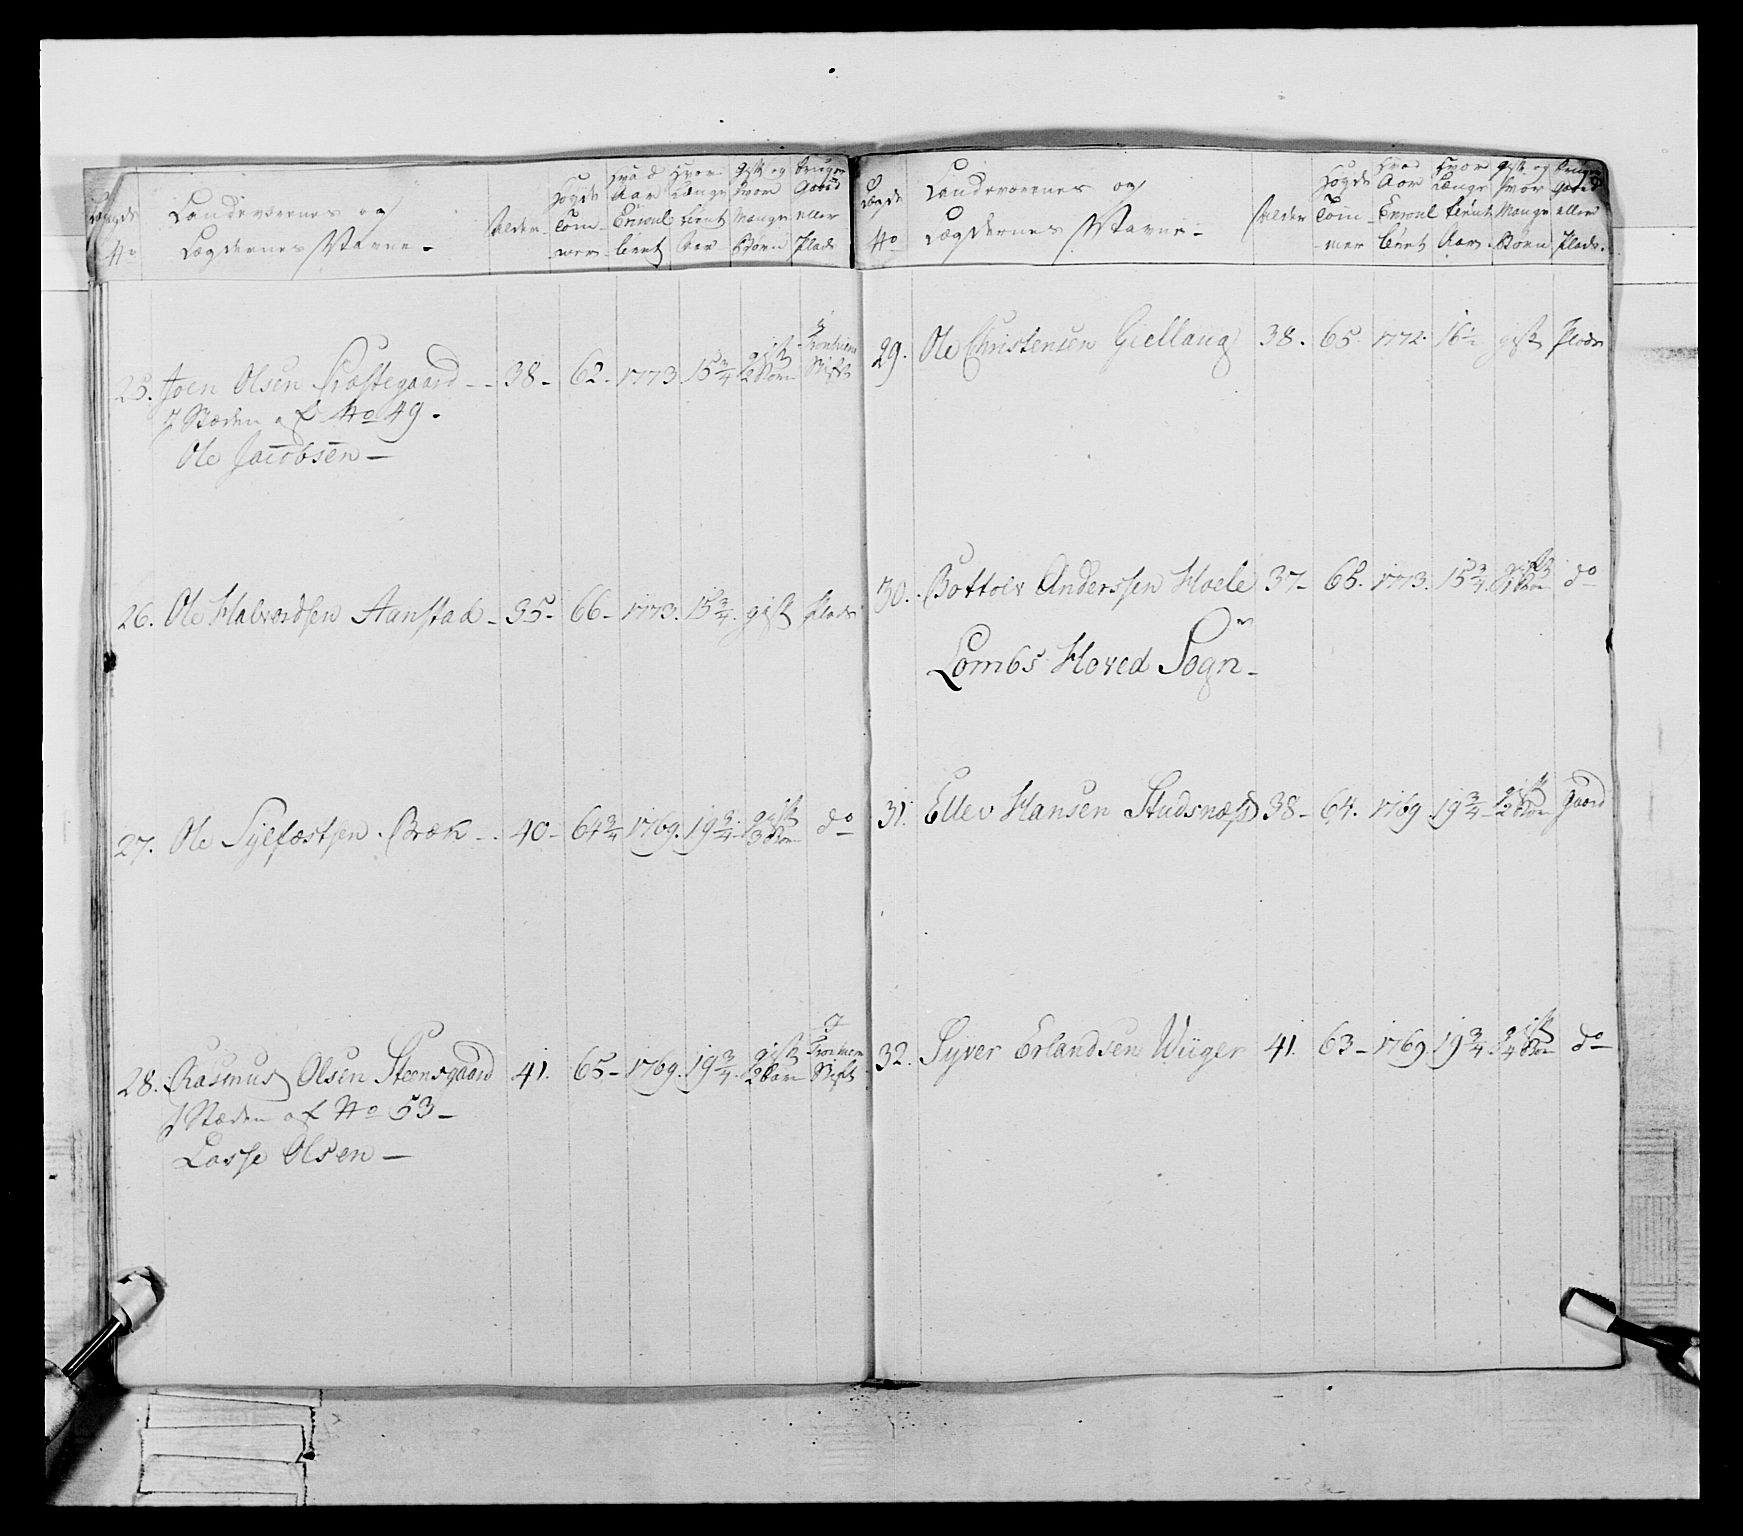 Lægde No
Landeværnes og Lægdernes Navne -
Alder
Høyde Tom- mer
Hvad Aar Enroul- lert
Hvor Længe tient Aar
gift og Hvor Mange Børn
bruger Gaard eller Plads
25. Joen Olsen Præstegaard - - 38 - 62 - 1773 15 3/4 gift 2 Børn
I Stæden af No 49.
Ole Jacobsen -
26. Ole Halvordsen Aanstad - 35 - 66 - 1773. 15 3/4. gift Plads
27. Ole Sylfæstsen Bræk - . 40 - 64 3/4 1769. 19 3/4. gift 3 Børn do
28. Rasmus Olsen Steensgaard 41. 65 - 1769. 19 3/4. gift 2 Børn I Tronhiem Stift
I Stæden af No 53 -
Lasse Olsen -
Lægde No
Landeværnes og Lægdernes Navne -
Alder
Høyde Tom- mer
Hvad Aar Enroul lert
Hvor Længe tient Aar.
gift og Hvor Mange Børn
bruger gaard eller Plads.
29. Ole Christensen Giellang 38. 65. 1772. 16 1/2 gift Plads
30. Bottolv Anderssen Hoele 37 - 68. 1773. 15 3/4 gift 1 Børn do
Lombs Hoved Sogn -
31. Ellev Hansen Studsnæs 38 - 64. 1769. 19 3/4 gift 2 Børn gaard
32. Syver Erlandsen Wüger 41. 63 - 1769 19 3/4 gift 4 Børn do